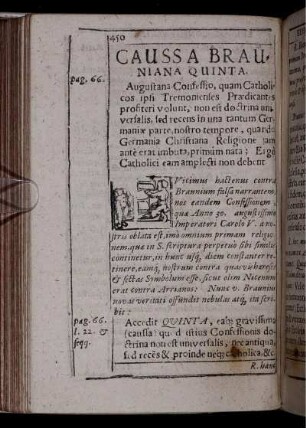 450
CAUSSA BRAU-
NIANA QUINTA.
pag. 66.
Augustana Confessio, quam Catholi-
cos ipsi Tremonienses Prædicantes
profiteri volunt, non est doctrina uni-
versalis, sed recens in una tantum Ger-
maniæ parte, nostro tempore, quando
Germania Christiana Religione jam
antè erat imbuta, primùm nata: Ergò
Catholici eam amplecti non debent
hactenus contra
Braunium falsa narrantem,
nos eandem Confessionem,
quæ Anno 30. augustissimo
Imperatori Carolo V. à no-
stris oblata est, imò omnium primam
nem, quæ in S. scriptura perpetuò sibi similis
continetur, in hunc usq; diem constanter re-
tinere, eamq; nostrum contra
& sectas Symbolum esse, sicut olim Nicenum
erat contra Arrianos: Nunc v. Braunius
novas veritati offundit nebulas atq; ita scri-
bit:
pag. 66.
l. 22. &
seqq.
Accedit QUINTA, eaq; gravissima
caussa: quòd istius Confessionis do-
ctrina non est universalis, nec antiqua,
sed recēs & proinde neq; catholica &c.
R. hanc